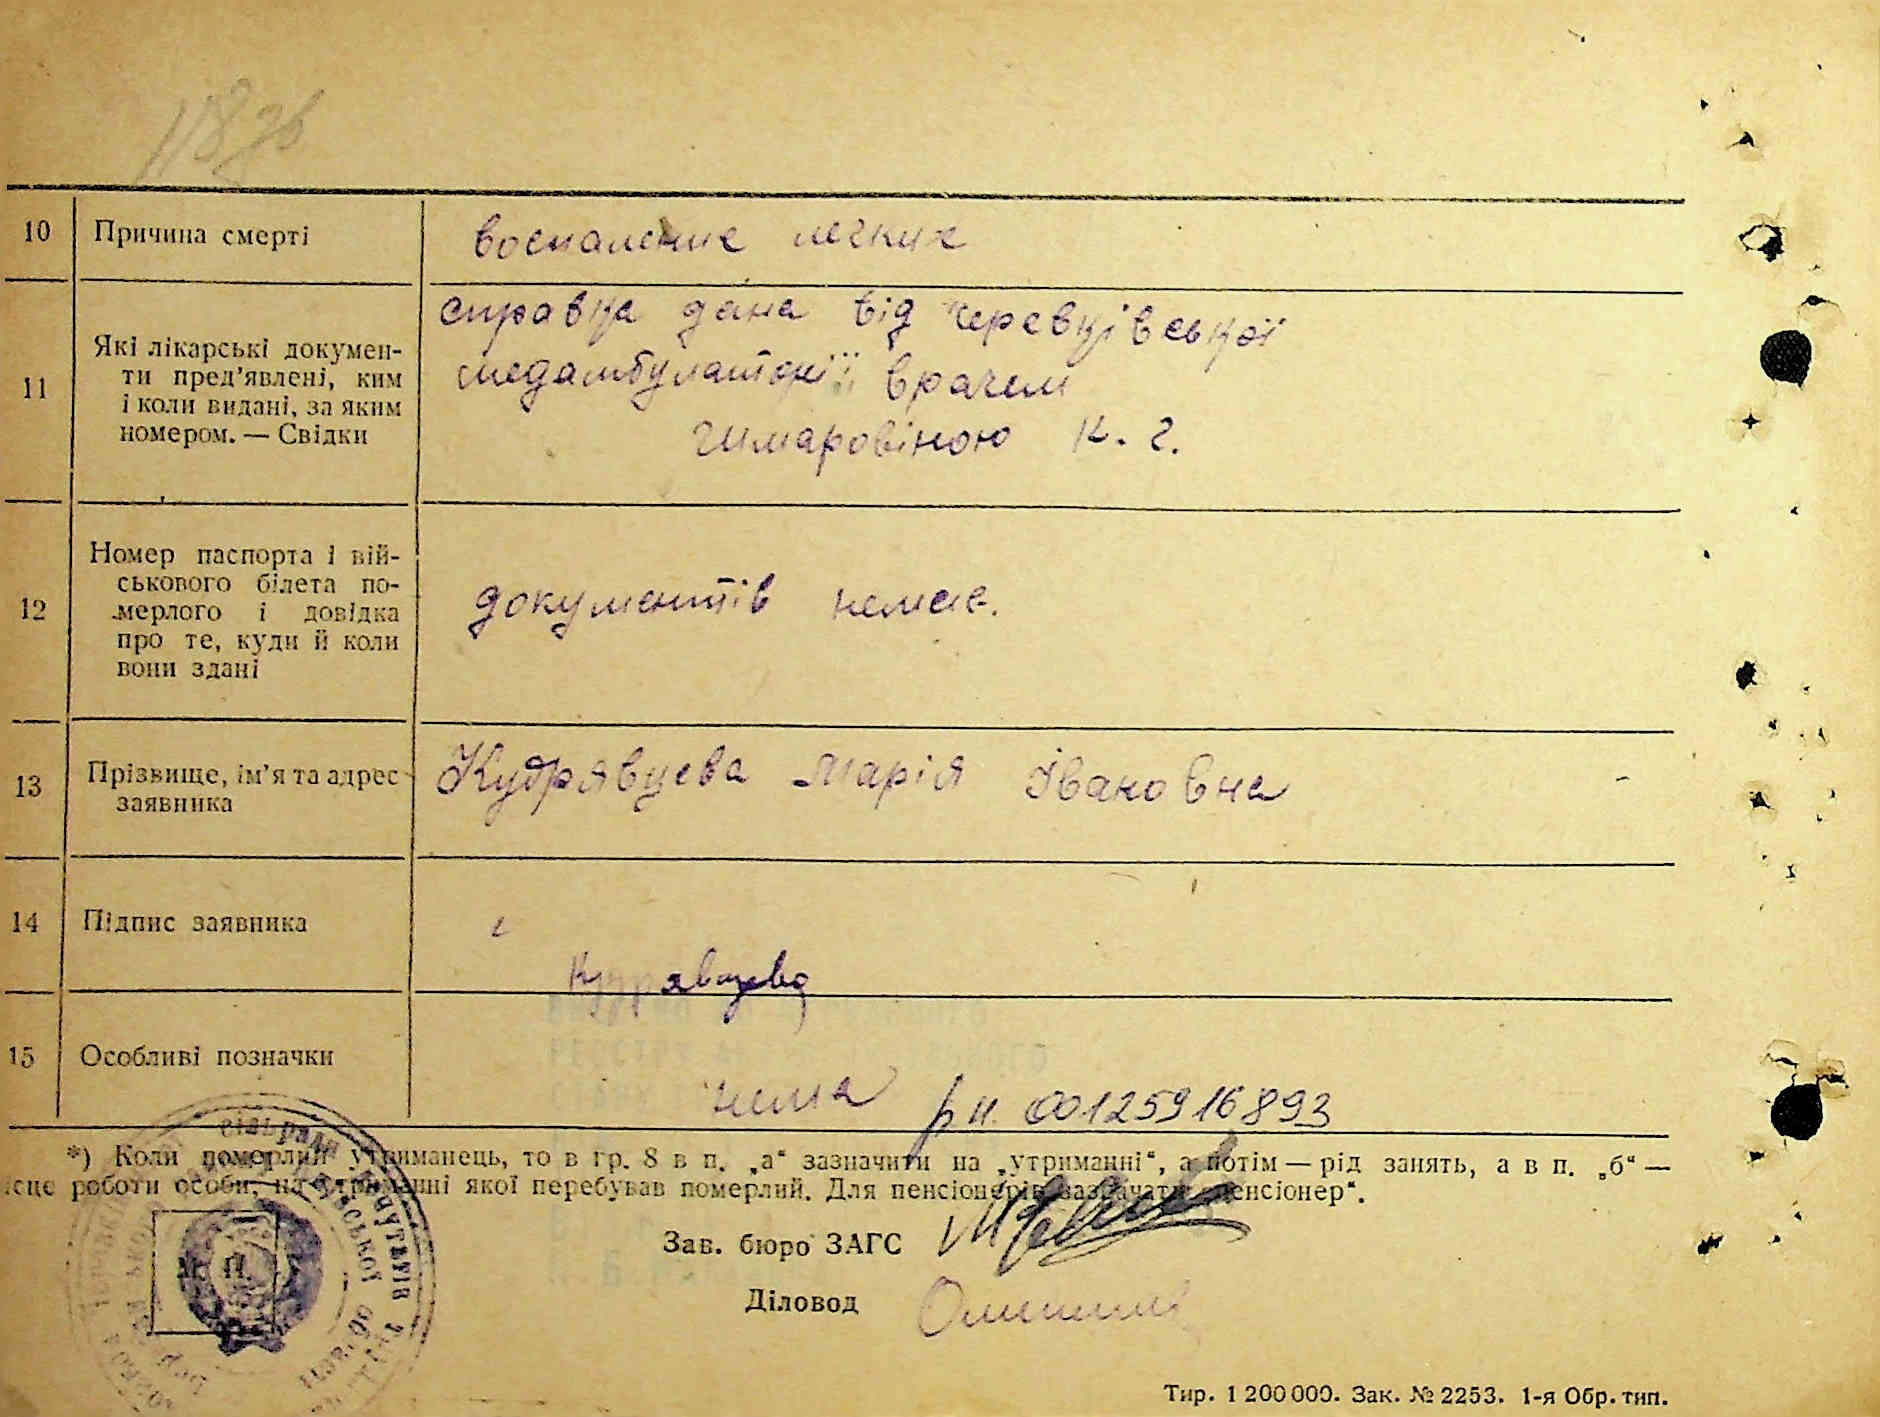 118
10 Причина смерті воспаление легких
11 Які лікарські докумен-
ти пред’явлені, ким
і коли видані, за яким
номером. — Свідки
справка дана від Черевківської
медамбулаторії врачем
К. Г.
12 Номер паспорта і вій-
ськового білета по-
мерлого і довідка
про те, куди й коли
вони здані
документів немає.
13 Прізвище, ім’я та адрес
заявника
Кудрявцева Марія Івановна
14 Підпис заявника
Кудрявцева
15 Особливі позначки
нема рн. 00125916893
*) Коли померлий утриманець, то в гр. 8 в п. „а“ зазначити на „утриманні“, а потім — рід занять, а в п. „б“ —
місце роботи особи, на утриманні якої перебував померлий. Для пенсіонерів зазначати „пенсіонер“.
Зав. бюро ЗАГС
Діловод
Тир. 1 200 000. Зак. № 2253. 1-я Обр. тип.